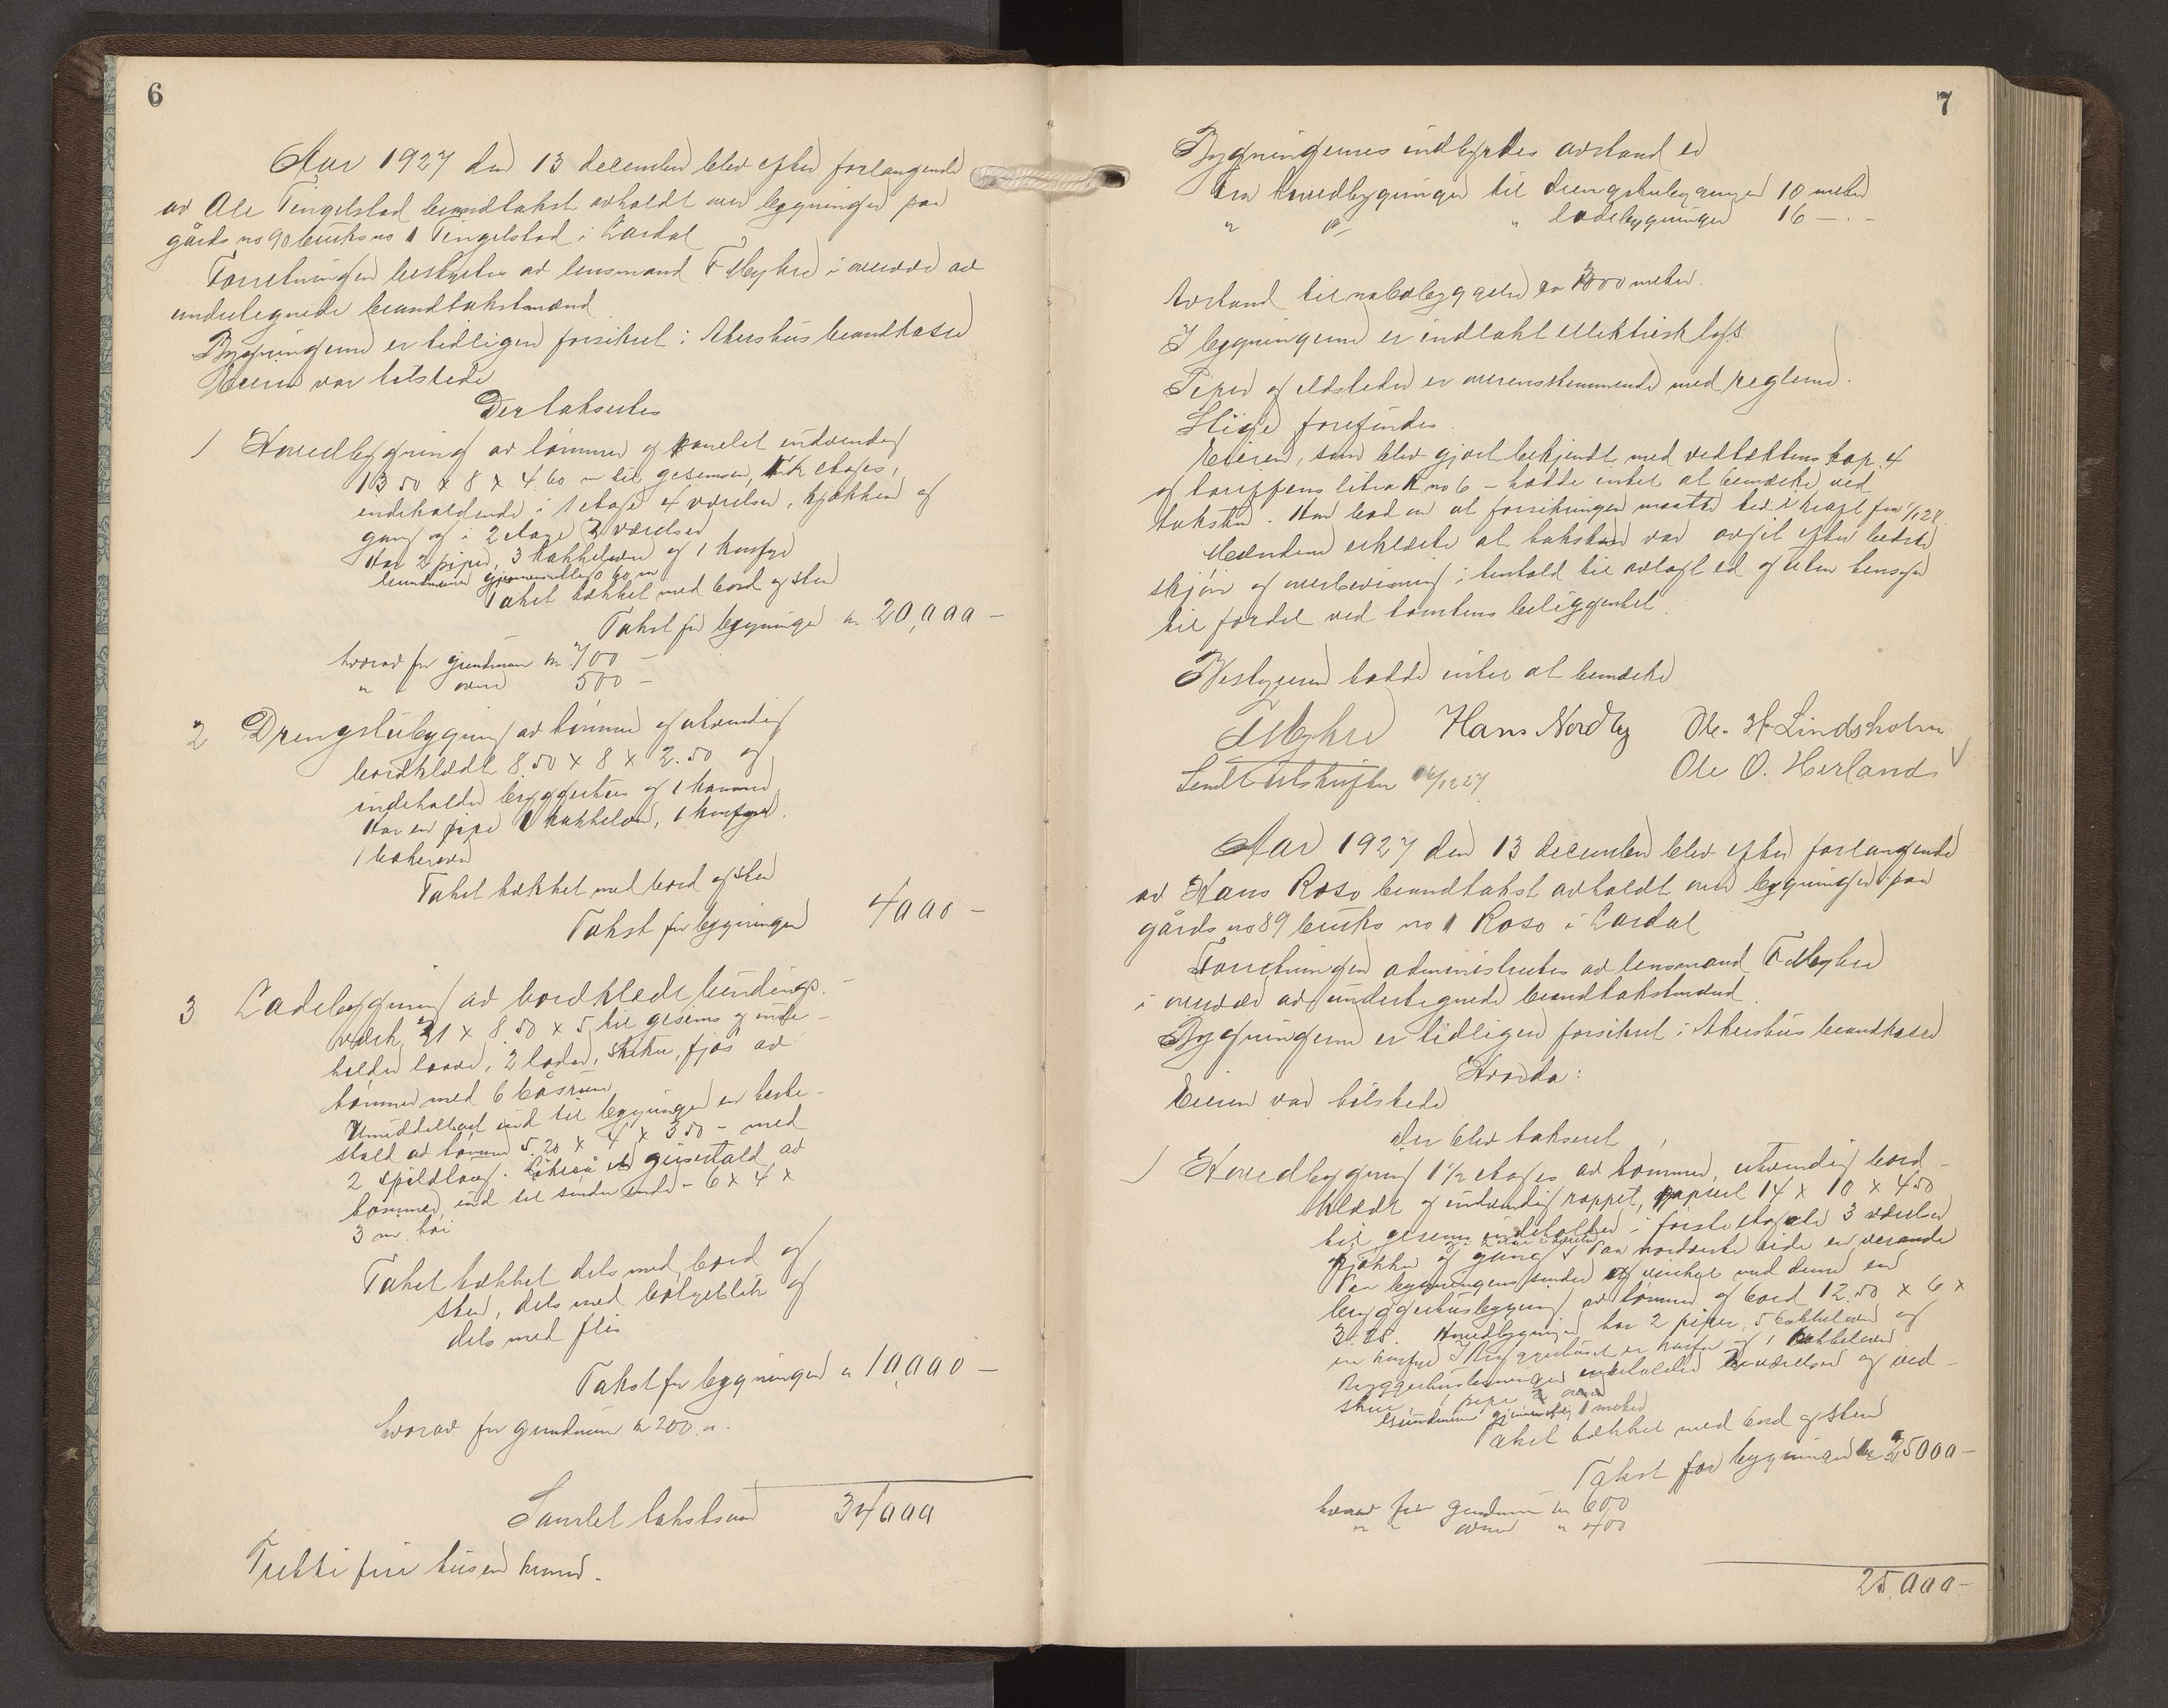 6
Aar 1927 den 13 december blev efter forlangende
av Ole Tingelstad brandtakst avholdt over bygninger paa
gårds no 90 bruks no 1 Tingelstad i Lardal
Forretningen bestyrtes av lensmand F Myhre i overvær av
undertegnede brandtakstmænd
Bygningerne er tidligere forsikret i Akershus brandkasse
Eieren var tilstede
Der taksertes
1 Hovedbygning av tømmer og panelet indvendig
13 50 x 8 x 4.60 m til gesimsen, etages,
indeholdende i 1 etage 4 værelser, kjøkken og
gang og i 2 etage 2 værelser
Har 2 piper, 3 kakkelovne og 1 komfyr
Grundmuren gjennemsnitlig 0 60 m
Taket tækket med bord og sten
Takst for bygningen kr 20,000 —
hvorav for grundmur kr 700 —
" " ovne 500 —
2 Drengstubygning av tømmer og utvendig
bordklædt 8.50 x 8 x 2.50 og
indeholder bryggerhus og 1 kammer
Har en pipe 1 kakkelovn, 1 komfyr.
1 bakerovn
Taket tækket med bord og sten
Takst for bygningen 4000 —
3 Ladebygning av bordklædt bindings-
værk 21 x 8.50 x 5 til gesims og inde-
holder laave, 2 lader, fjøs av
tømmer med 6 båsrum
Umiddelbart ind til bygningen en heste-
stald av tømmer 5.20 x 4 x 3 50 — med
2 spildtoug. Likeså en grisestald av
tømmer, ind til søndre ende — 6 x 4 x
3 m. høi
Taket tækket dels med bord og
sten, dels med bølgeblik og
dels med flis
Takst for bygningen kr 10,000 —
hvorav for grundmur kr 200.
Samlet takstsum 34000
Tretti fire tusen kroner.
7
Bygningernes indbyrdes avstand er
fra hovedbygningen til drengstubygningen 10 meter
" " ladebygningen 16 — " —
Avstand til nabobebyggelse ca 300 meter.
I bygningerne er indlakt elektrisk lys
Piper og ildsteder er overensstemmende med reglerne.
Stige forefindes.
Eieren, som blev gjort bekjendt med vedtektens kap. 4
og tariffens litra K no 6 — hadde intet at bemerke ved
taksten. Han bad om at forsikringen maatte træ i kraft fra 1/1 28.
Mændene erklærte at taksten var avgit efter bedste
skjøn og overbevisning i henhold til avlagt ed og uten hensyn
til fordel ved tomtens beliggenhet.
Bestyreren hadde intet at bemerke
F Myhre Hans Nordby Ole. H. Lindsholm
Sendt utskrifter 16/12 27 Ole O. Herland
Aar 1927 den 13 december blev efter forlangende
av Hans Roso brandtakst avholdt over bygninger paa
gårds no 89 bruks no 1 Roso i Lardal
Forretningen administrertes av lensmand F Myhre
i overvær av undertegnede brandtakstmænd
Bygningerne er tidligere forsikret i Akershus brandkasse
Hvorda:
Eieren var tilstede
der blev taksert
1 Hovedbygning 1 1/2 etages av tømmer, utvendig bord-
klædt og indvendig rappet, papiret 14 x 10 x 4 50
til gesims indeholder i første etage 3 værelser
kjøkken og gang Paa nordvestre side en veranda
Paa bygningens søndre og vinkel med denne en
bryggerhusbygning av tømmer og bord 12.50 x 6 x
3.25. Hovedbygningen har 2 piper, 5 kakkelovne og
en komfyr I bryggerhuset er komfyr og 1 kakkelovn
Bryggerhusbygningen indeholder værelser og ved-
skur 1 pipe
Grundmuren gjennemsnitlig 1 meter
Taket tækket med bord og sten
Takst for bygningen kr 25000 —
hvorav for grundmur kr 600
" " ovne " 400
25.000 —